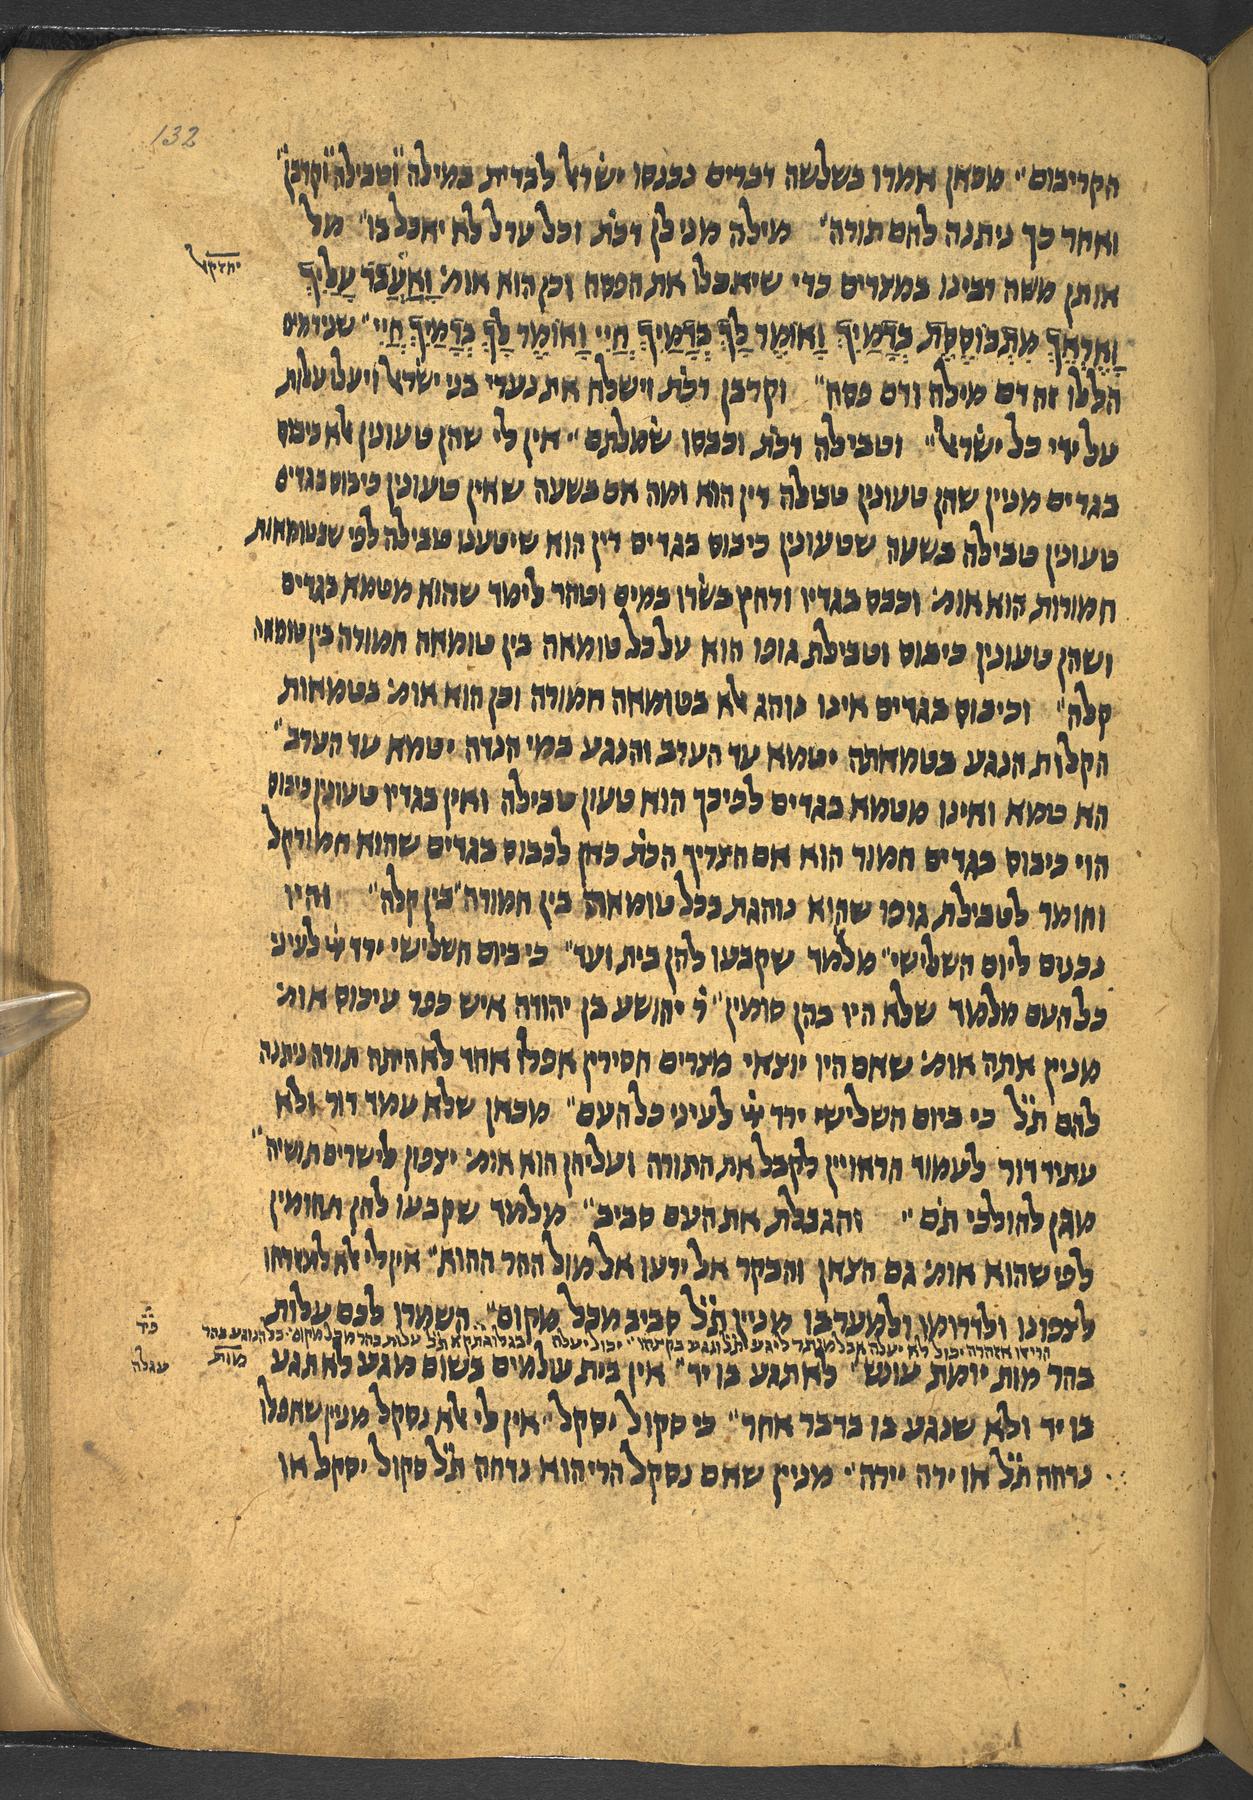 132
הקריבום" מכאן אמרו בשלשה דברים נכנסו ישראל לברית במילה" וטבילה" וקרבן"
ואחר כך ניתנה להם תורה" מילה מנילן דכת׳ וכל ערל לא יאכל בו" מל
יחזקאל
אותן משה רבינו במצרים כדי שיאכלו את הפסח וכן הוא אומ׳ וָאֶעֱבֹר עָלַיִךְ
וָאֶרְאֵךְ מִתְבּוֹסֶסֶת בְּדָמָיִךְ וָאוֹמַר לָךְ בְּדָמַיִךְ חֲיִי וָאוֹמַר לָךְ בְּדָמַיִךְ חֲיִי" שני דמים
הללו זה דם מילה ודם פסח" וקרבן דכת׳ וישלח את נערי בני ישראל ויעלו עלות
על ידי כל ישראל" וטבילה דכת׳ וכבסו שמלתם" אין לי שהן טעונין אלא כיבוס
בגדים מנין שהן טעונין טבילה דין הוא ומה אם בשעה שאין טעונין כיבוס בגדים
טעונין טבילה בשעה שטעונין כיבוס בגדים דין הוא שיטענו טבילה לפי שבטומאות
חמורות הוא אומ׳ וכבס בגדיו ורחץ בשרו במים וטהר לימד שהוא מטמא בגדים
ושהן טעונין כיבוס וטבילת גופו הוא על כל טומאה בין טומאה חמורה בין טומאה
קלה" וכיבוס בגדים אינו נוהג אלא בטומאה חמורה וכן הוא אומ׳ בטמאות
הקלות הנגע בטמאתה יטמא עד הערב והנגע במי הנדה יטמא עד הערב"
הא טמא ואינו מטמא בגדים לפיכך הוא טעון טבילה ואין בגדיו טעונין כיבוס
הוי כיבוס בגדים חמור הוא אם הצריך הכת׳ כאן לכבוס בגדים שהוא חמור קל
וחומר לטבילת גופו שהוא נוהגת בכל טומאה בין חמורה" בין קלה" והיו
נכנים ליום השלישי" מלמד שקבעו להן בית ועד" כי ביום השלישי ירד לעיני
כל העם מלמד שלא היו בהן סומין" ר׳ יהושע בן יהודה איש כפר עיכוס אומ׳
מנין אתה אומ׳ שאם היו יוצאי מצרים חסירין אפלו אחד לא היתה תורה ניתנה
להם ת״ל כי ביום השלישי ירד לעיני כל העם" מכאן שלא עמד דור ולא
עתיד דור לעמוד הראויין לקבל את התורה ועליהן הוא אומ׳ יצפון לישרים תושיה"
מגן להולכי תם" והגבלת את העם סביב" מלמד שקבעו להן תחומין
לפי שהוא אומ׳ גם הצאן והבקר אל ירעו אל מול ההר ההוא" אין לי אלא למזרחו
לצפונו ולדרומו ולמערבו מניין ת״ל סביב מכל מקום" השמרו לכם עלות
הרי זו אזהרה יכול לא יעלה אבל יגע ת״ל ונגע בקצהו" יכול יעלה ת״ל עלות בהר מכל מקום" כל הנוגע בהר
מות
עגלה
בהר מות יומת עונש" לא תגע בו יד" אין בית עולמים בשום מגע לא תגע
בו יד ולא שנגע בו בדבר אחר" כי סקול יסקל" אין לי אלא נסקל מנין שאפלו
נדחה ת״ל או ירה יירה" מנין שאם נסקל הרי הוא נדחה ת״ל סקול יסקל או